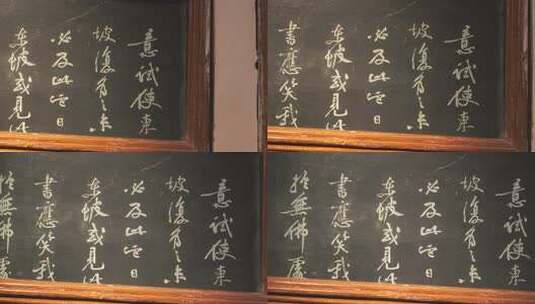 意試使東
坡復為之未
必及此它日
東坡或見此
意試使東
坡復為之未
必及此它日
東坡或見此
書應笑我
意試使東
坡復為之未
必及此它日
東坡或見此
書應笑我
於無佛處
意試使東
坡復為之未
必及此它日
東坡或見此
書應笑我
於無佛處